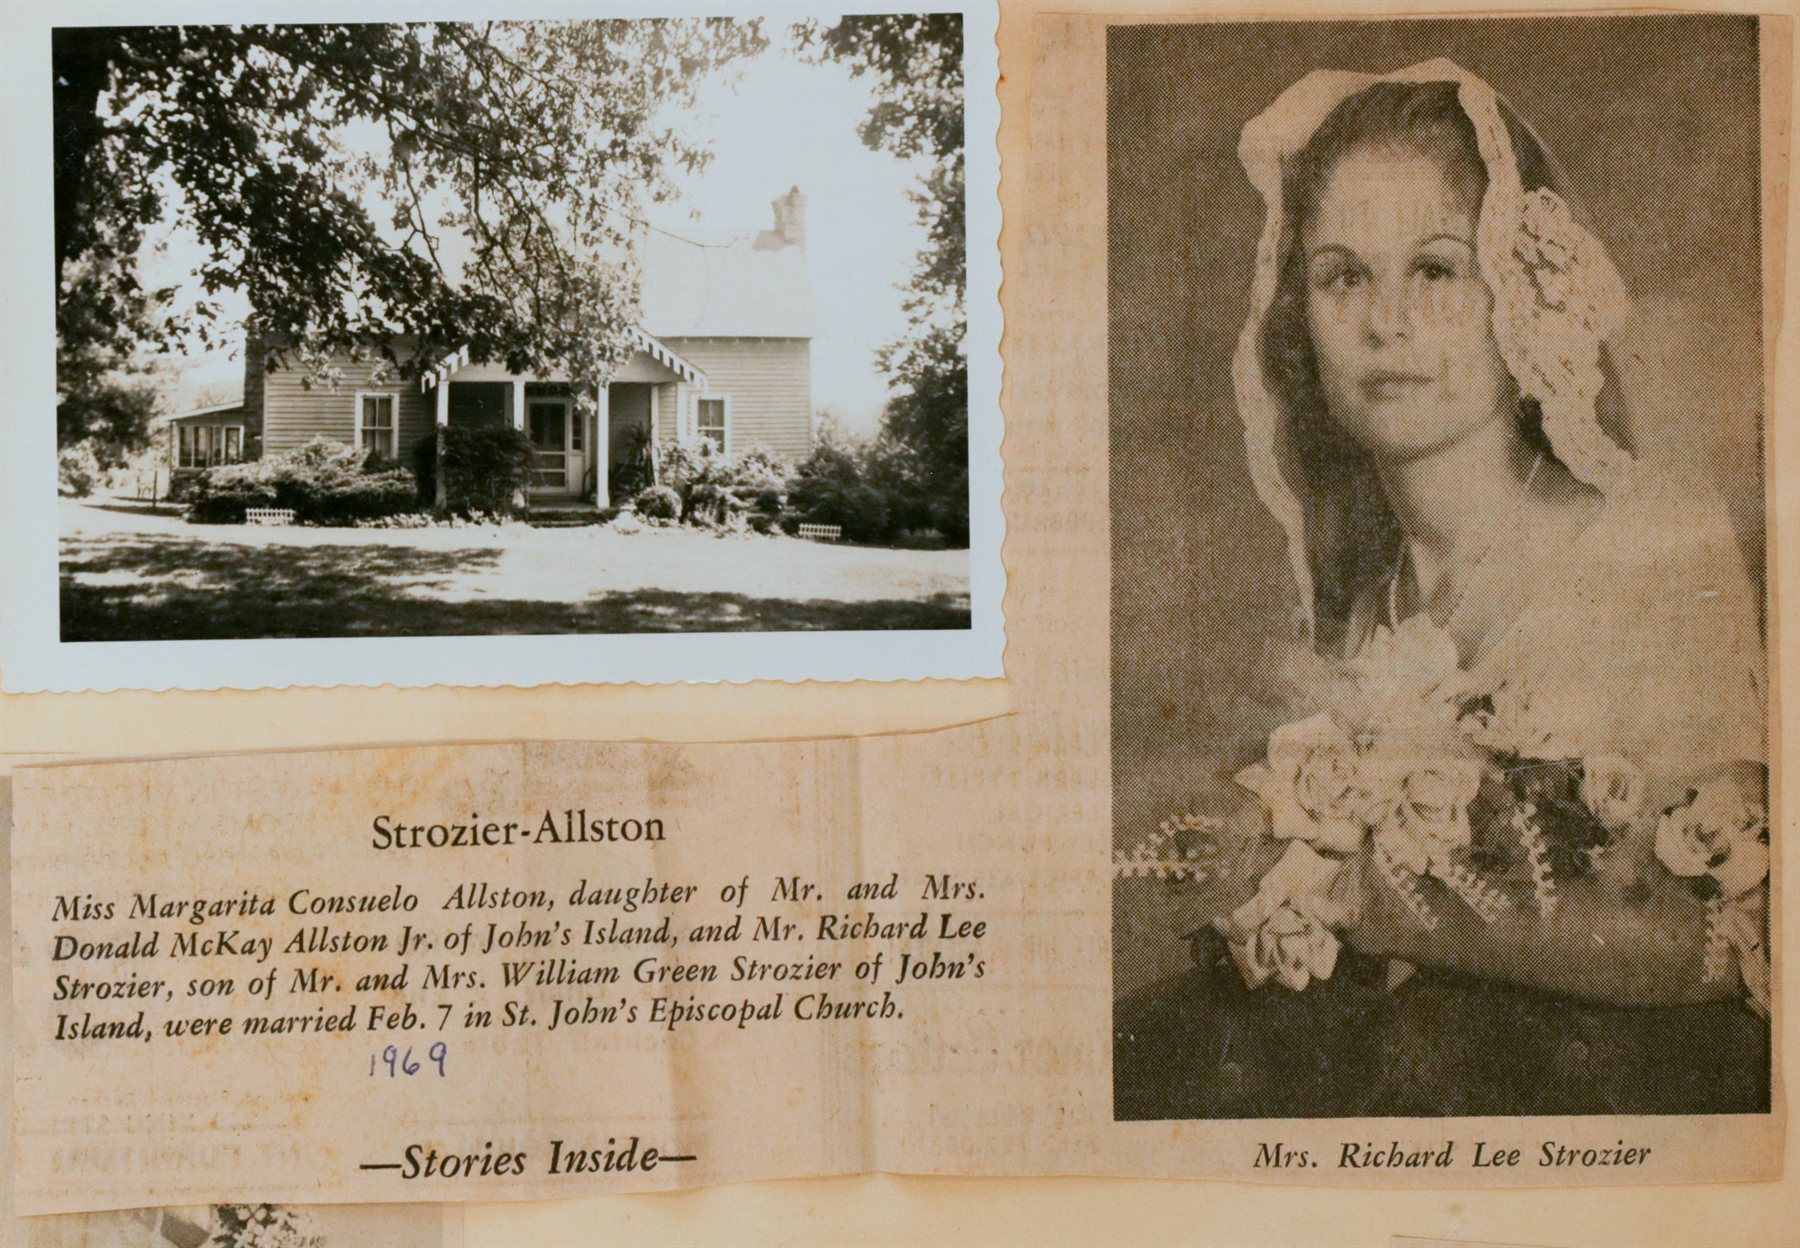 Strozier-Allston
Miss Margarita Consuelo Allston, daughter of Mr. and Mrs.
Donald McKay Allston Jr. of John's Island, and Mr. Richard Lee
Strozier, son of Mr. and Mrs. William Green Strozier of John's
Island, were married Feb. 7 in St. John's Episcopal Church.
1969
—Stories Inside—
Mrs. Richard Lee Strozier